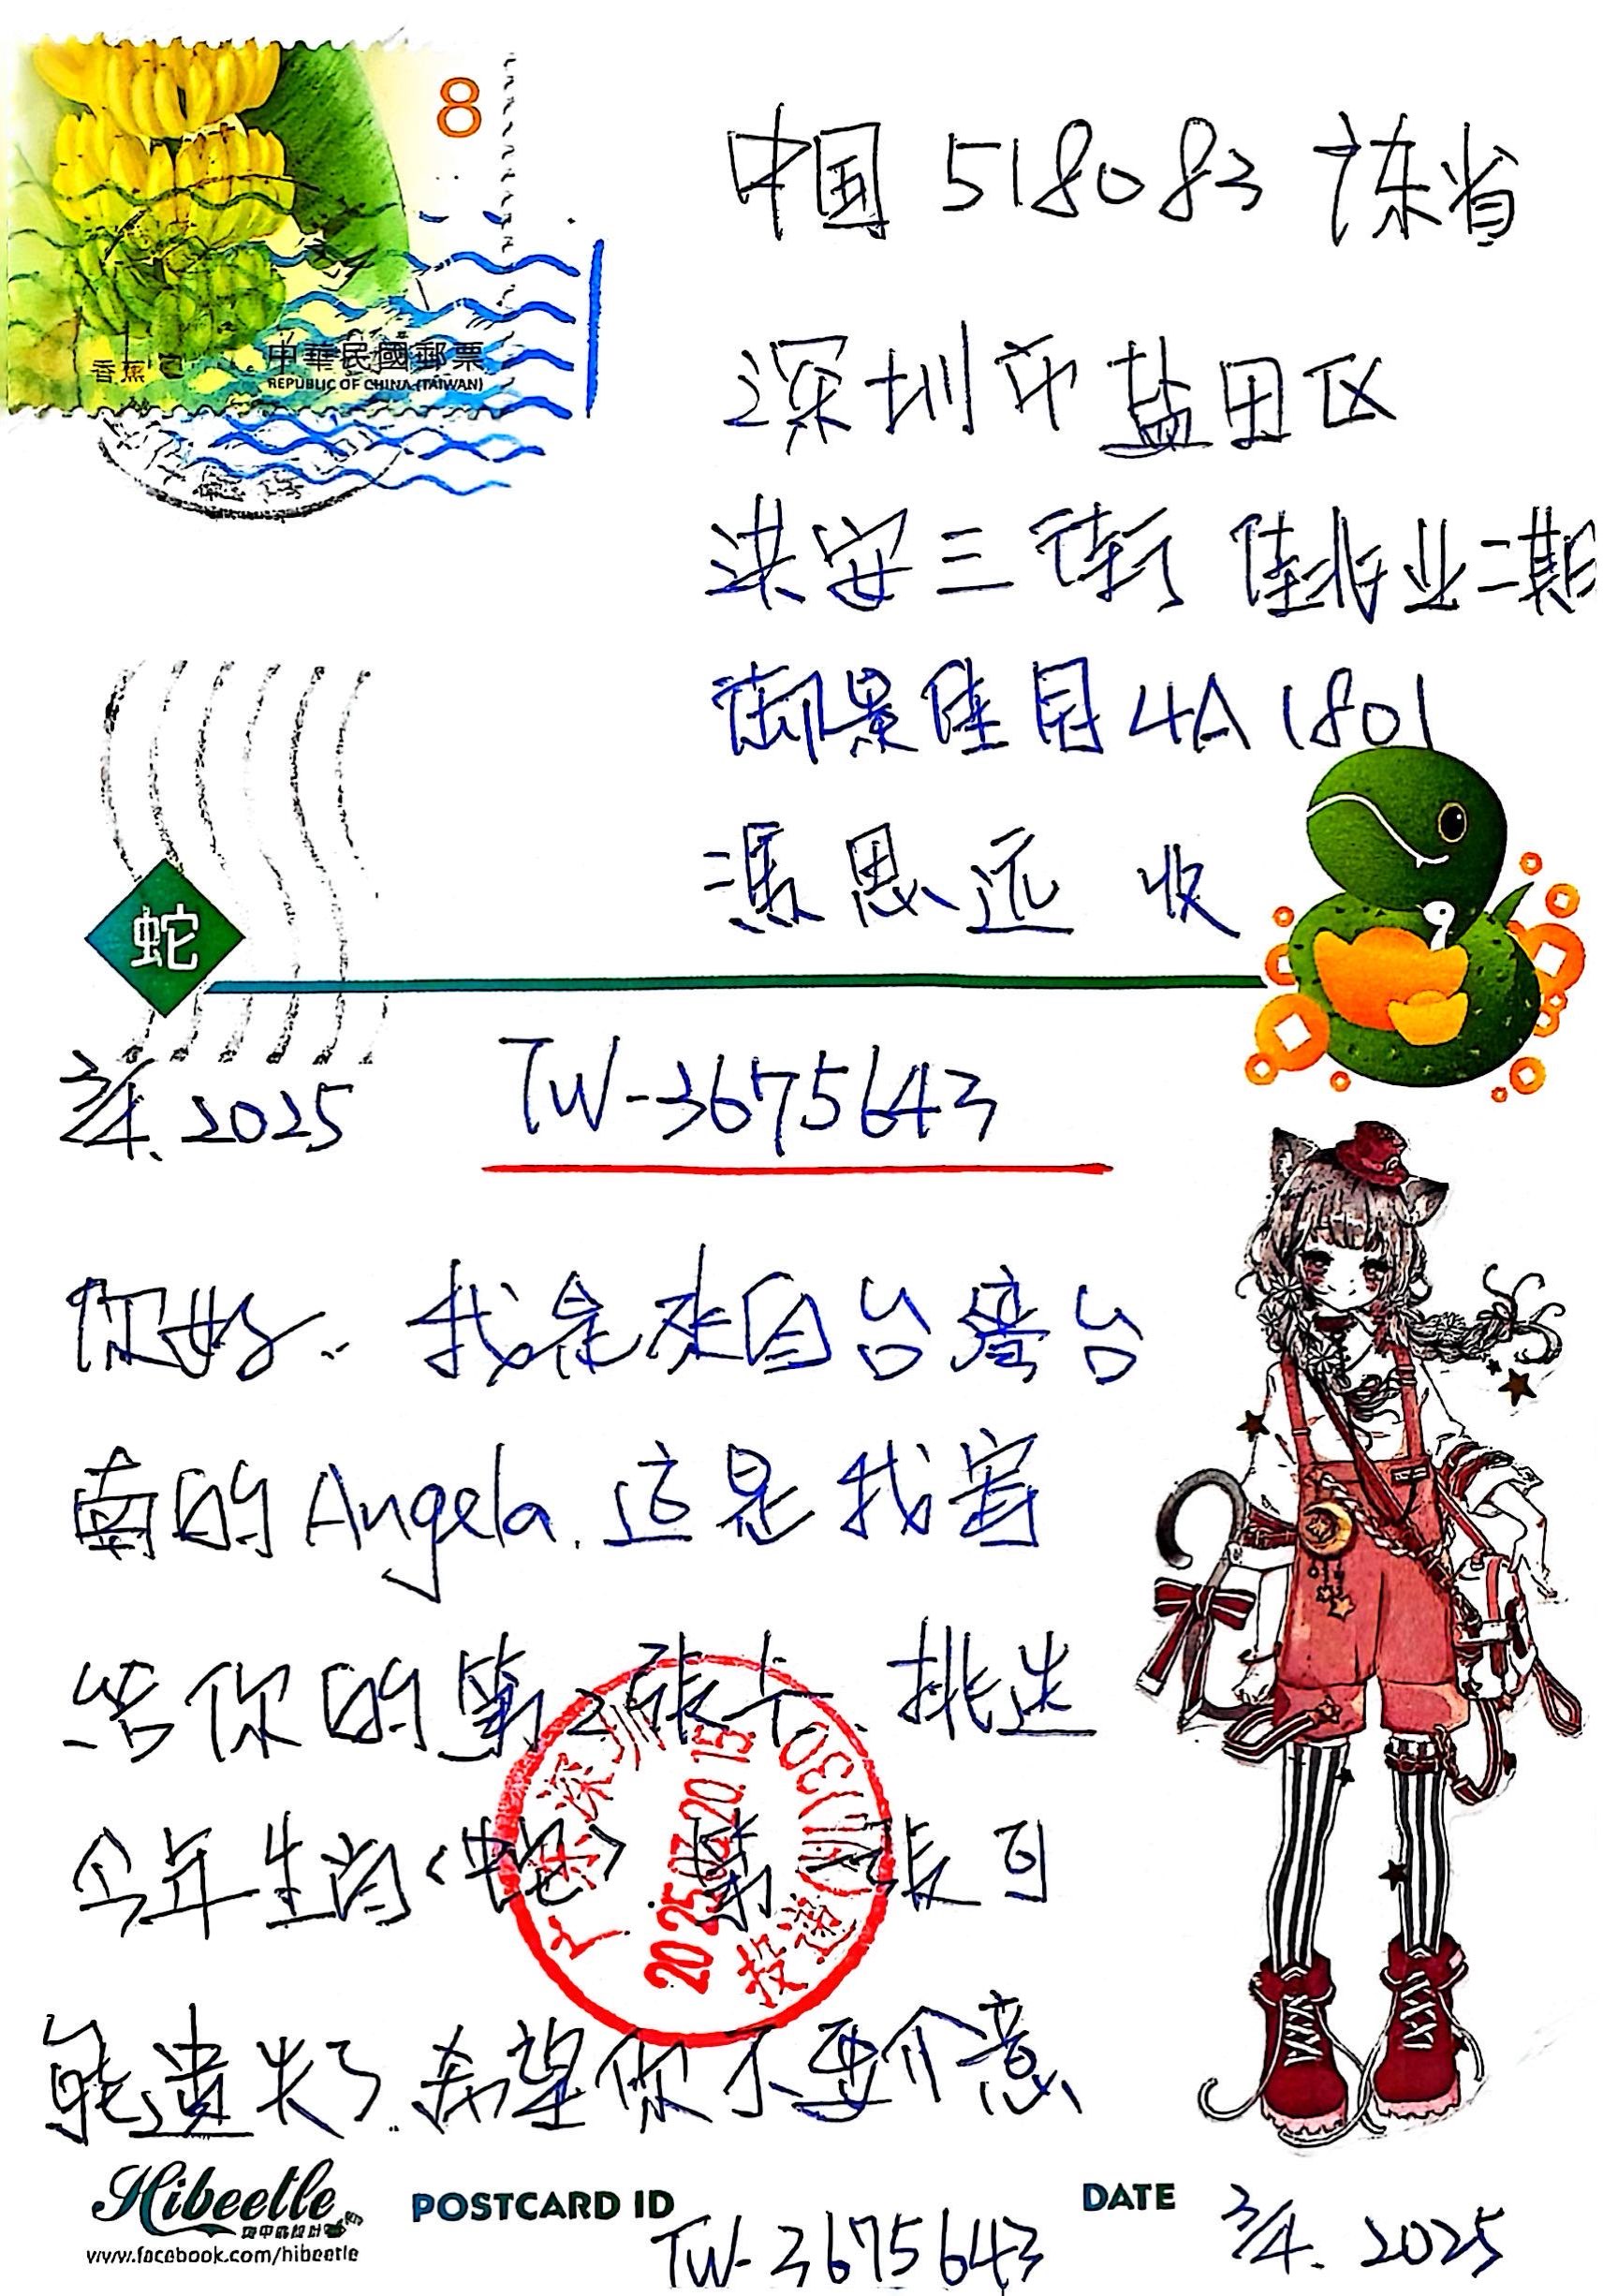 8
香蕉
中華民國郵票
REPUBLIC OF CHINA (TAIWAN)
中国 518083 广东省
深圳市盐田区
洪安三街 佳兆业二期
御景佳园 4A 1801
冯思远 收
蛇
3/4. 2025
TW-3675643
你好、我是来自台湾台
南的Angela.这是我寄
给你的第2张卡.挑选
今年生肖<蛇>第一张可
能遗失了.希望你不要介意
广东深圳
2025.07.20.15
投递
Hibeetle
www.facebook.com/hibeetle
POSTCARD ID TW-3675643
DATE 3/4. 2025